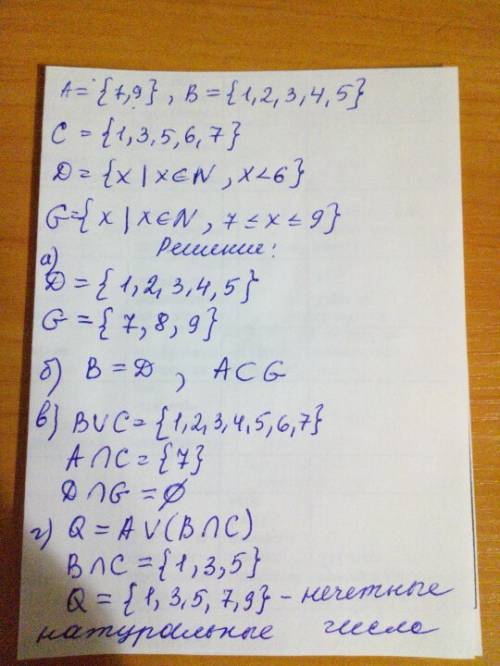 A = {7,9}, B = {1,2,3,4,5}
C = {1,3,5,6,7}
D = {x | x∈N, x<6}
G={x | x∈N, 7 ≤ x ≤ 9}
Решение:
а)
D = {1,2,3,4,5}
G = {7,8,9}
б) B = D, A⊂G
в) B∪C = {1,2,3,4,5,6,7}
A∩C = {7}
D∩G = ∅
г) Q = A∪(B∩C)
B∩C = {1,3,5}
Q = {1,3,5,7,9} - нечетные
натуральные числа